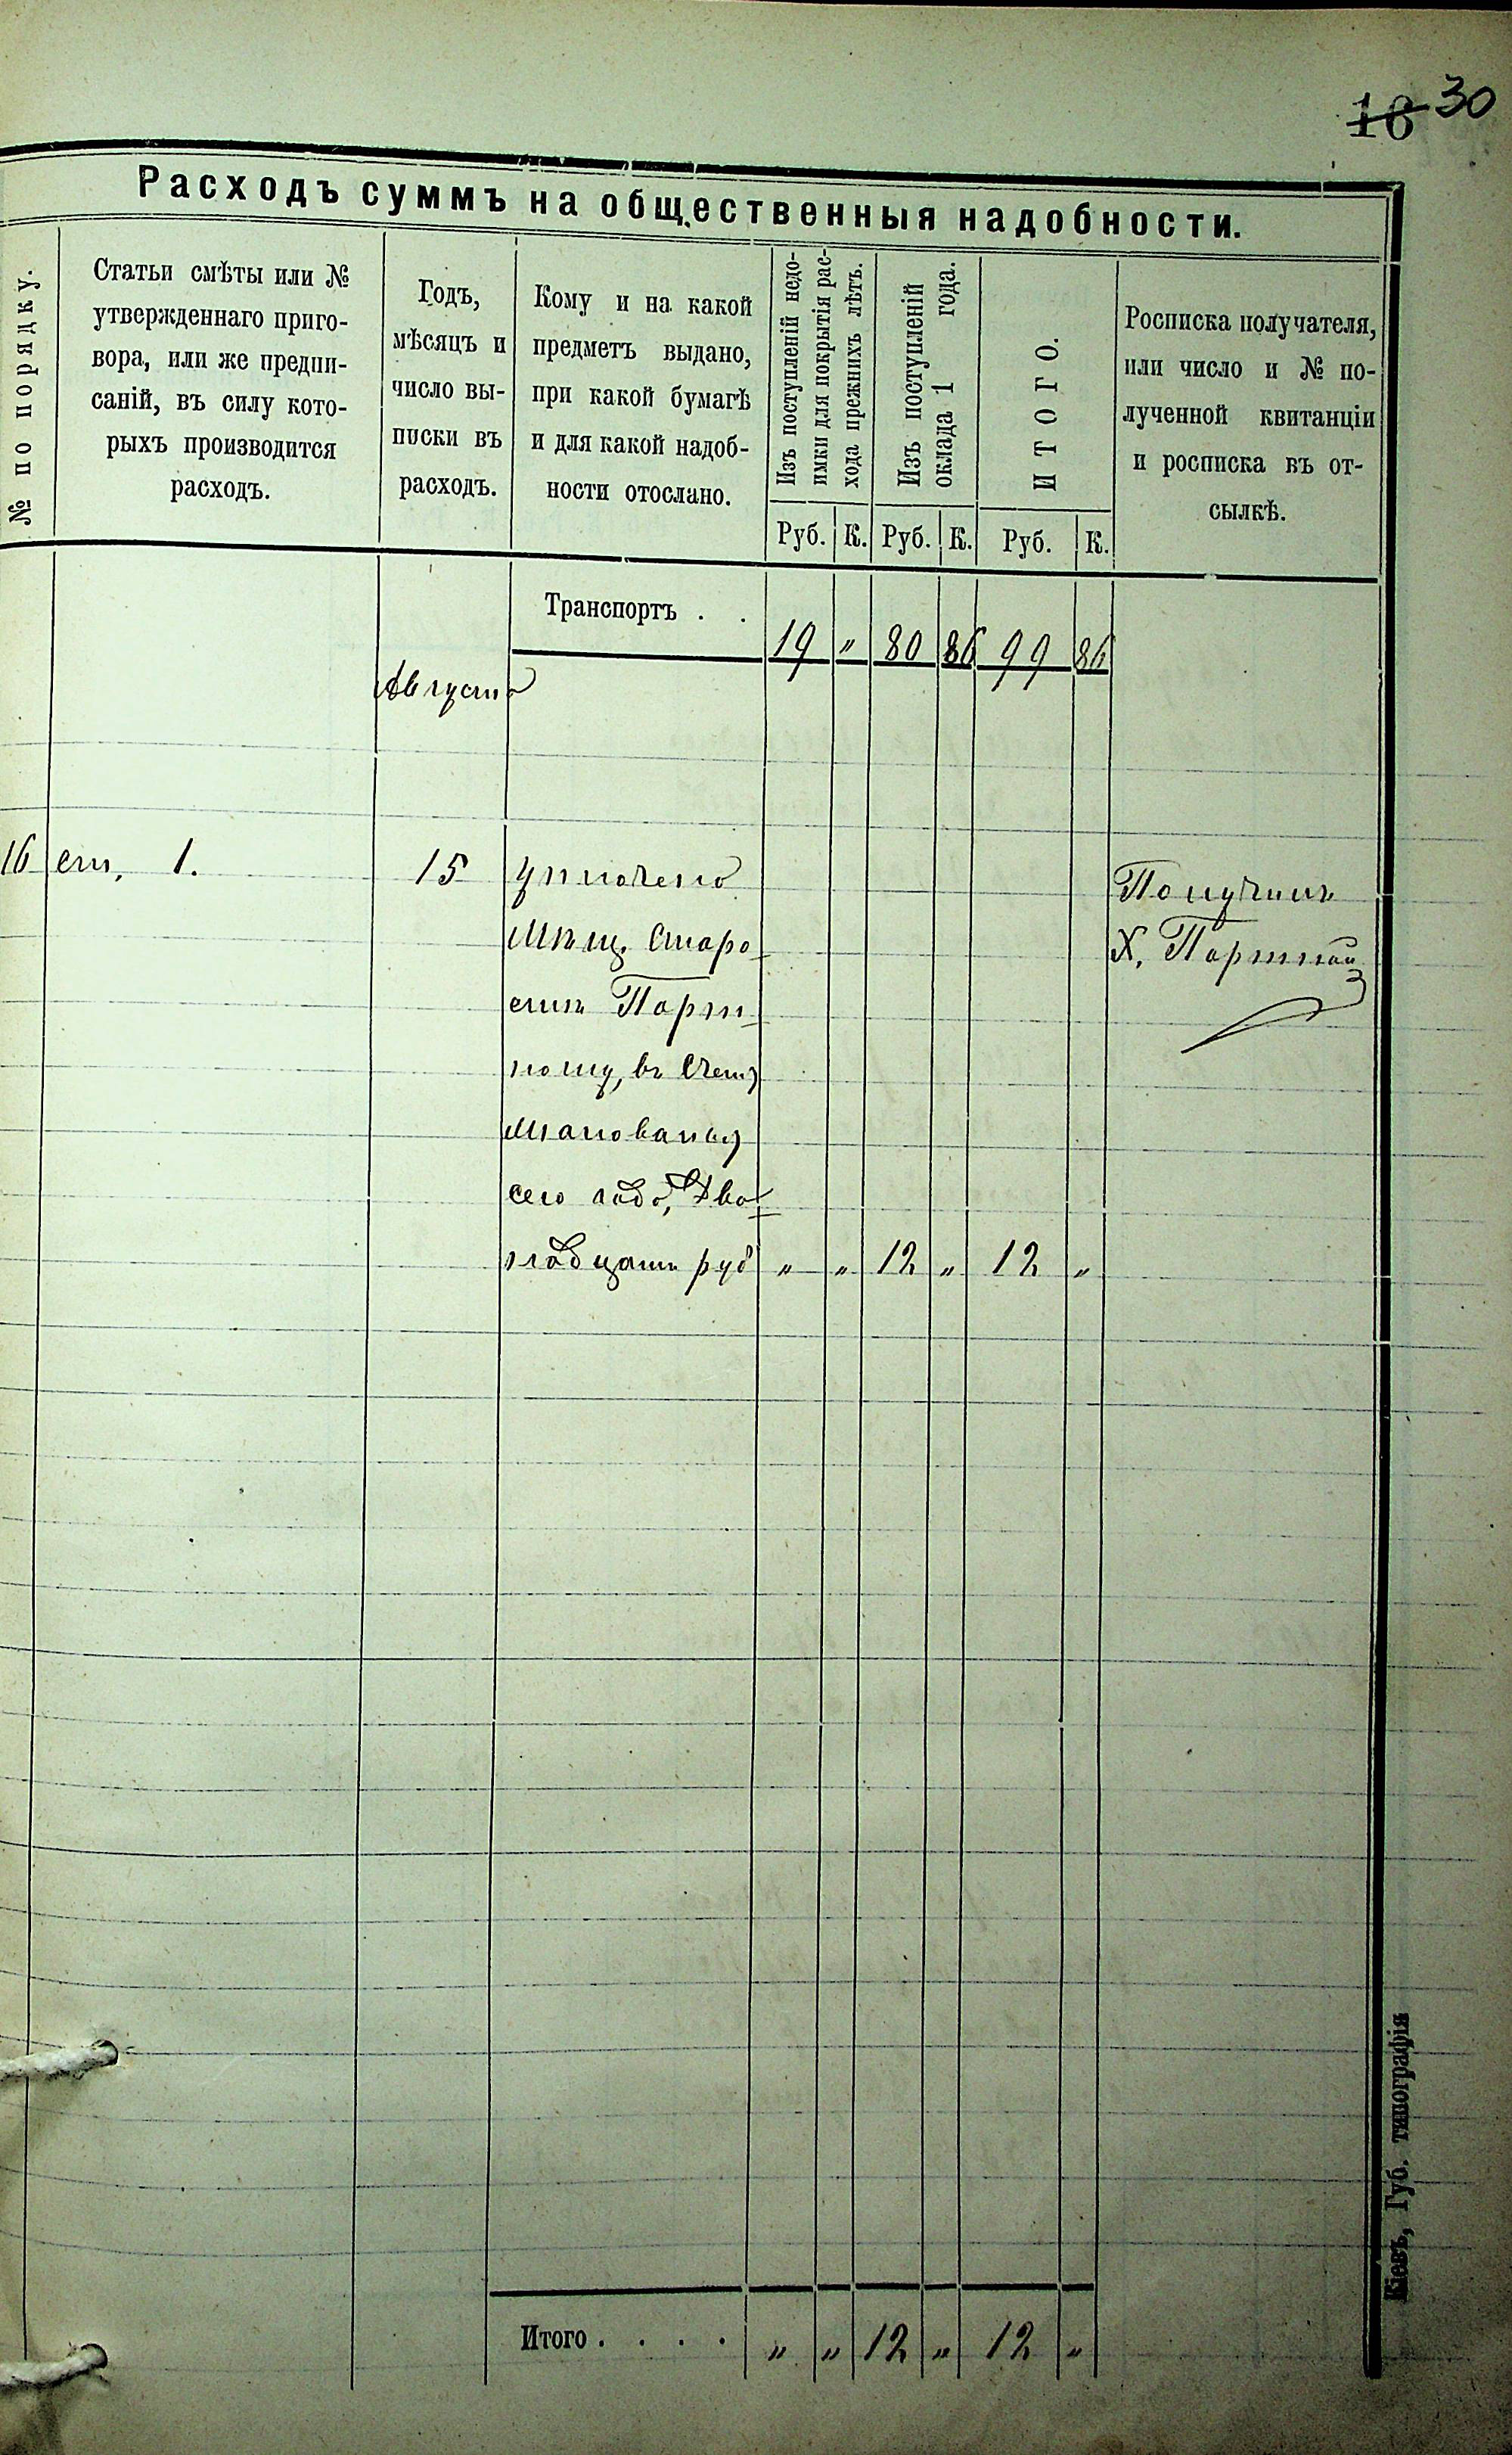 16 30
Расходъ суммъ на общественныя надобности.
№ по порядку.
Статьи смѣты или №
утвержденнаго приго-
вора, или же предпи-
саній, въ силу кото-
рыхъ производится
расходъ.
Годъ,
мѣсяцъ и
число вы-
писки въ
расходъ.
Кому и на какой
предметъ выдано,
при какой бумагѣ
и для какой надоб-
ности отослано.
Изъ поступленій недо-
имки для покрытія рас-
хода прежнихъ лѣтъ.
Изъ поступленій
оклада 1 года.
ИТОГО.
Росписка получателя,
или число и № по-
лученной квитанціи
и росписка въ от-
сылкѣ.
Руб. К. Руб. К. Руб. К.
Транспортъ . . 19 „ 80 86 99 86
Августа
16 ст, 1. 15 Уплочено
Мѣщ. Старо
стѣ Порт
ному, въ Счетъ
Жалованья
сего года, Две
надцать руб „ „ 12 „ 12 „
Получилъ
Х, Портной
Итого . . . . „ „ 12 „ 12 „
Кіевъ, Губ. типографія